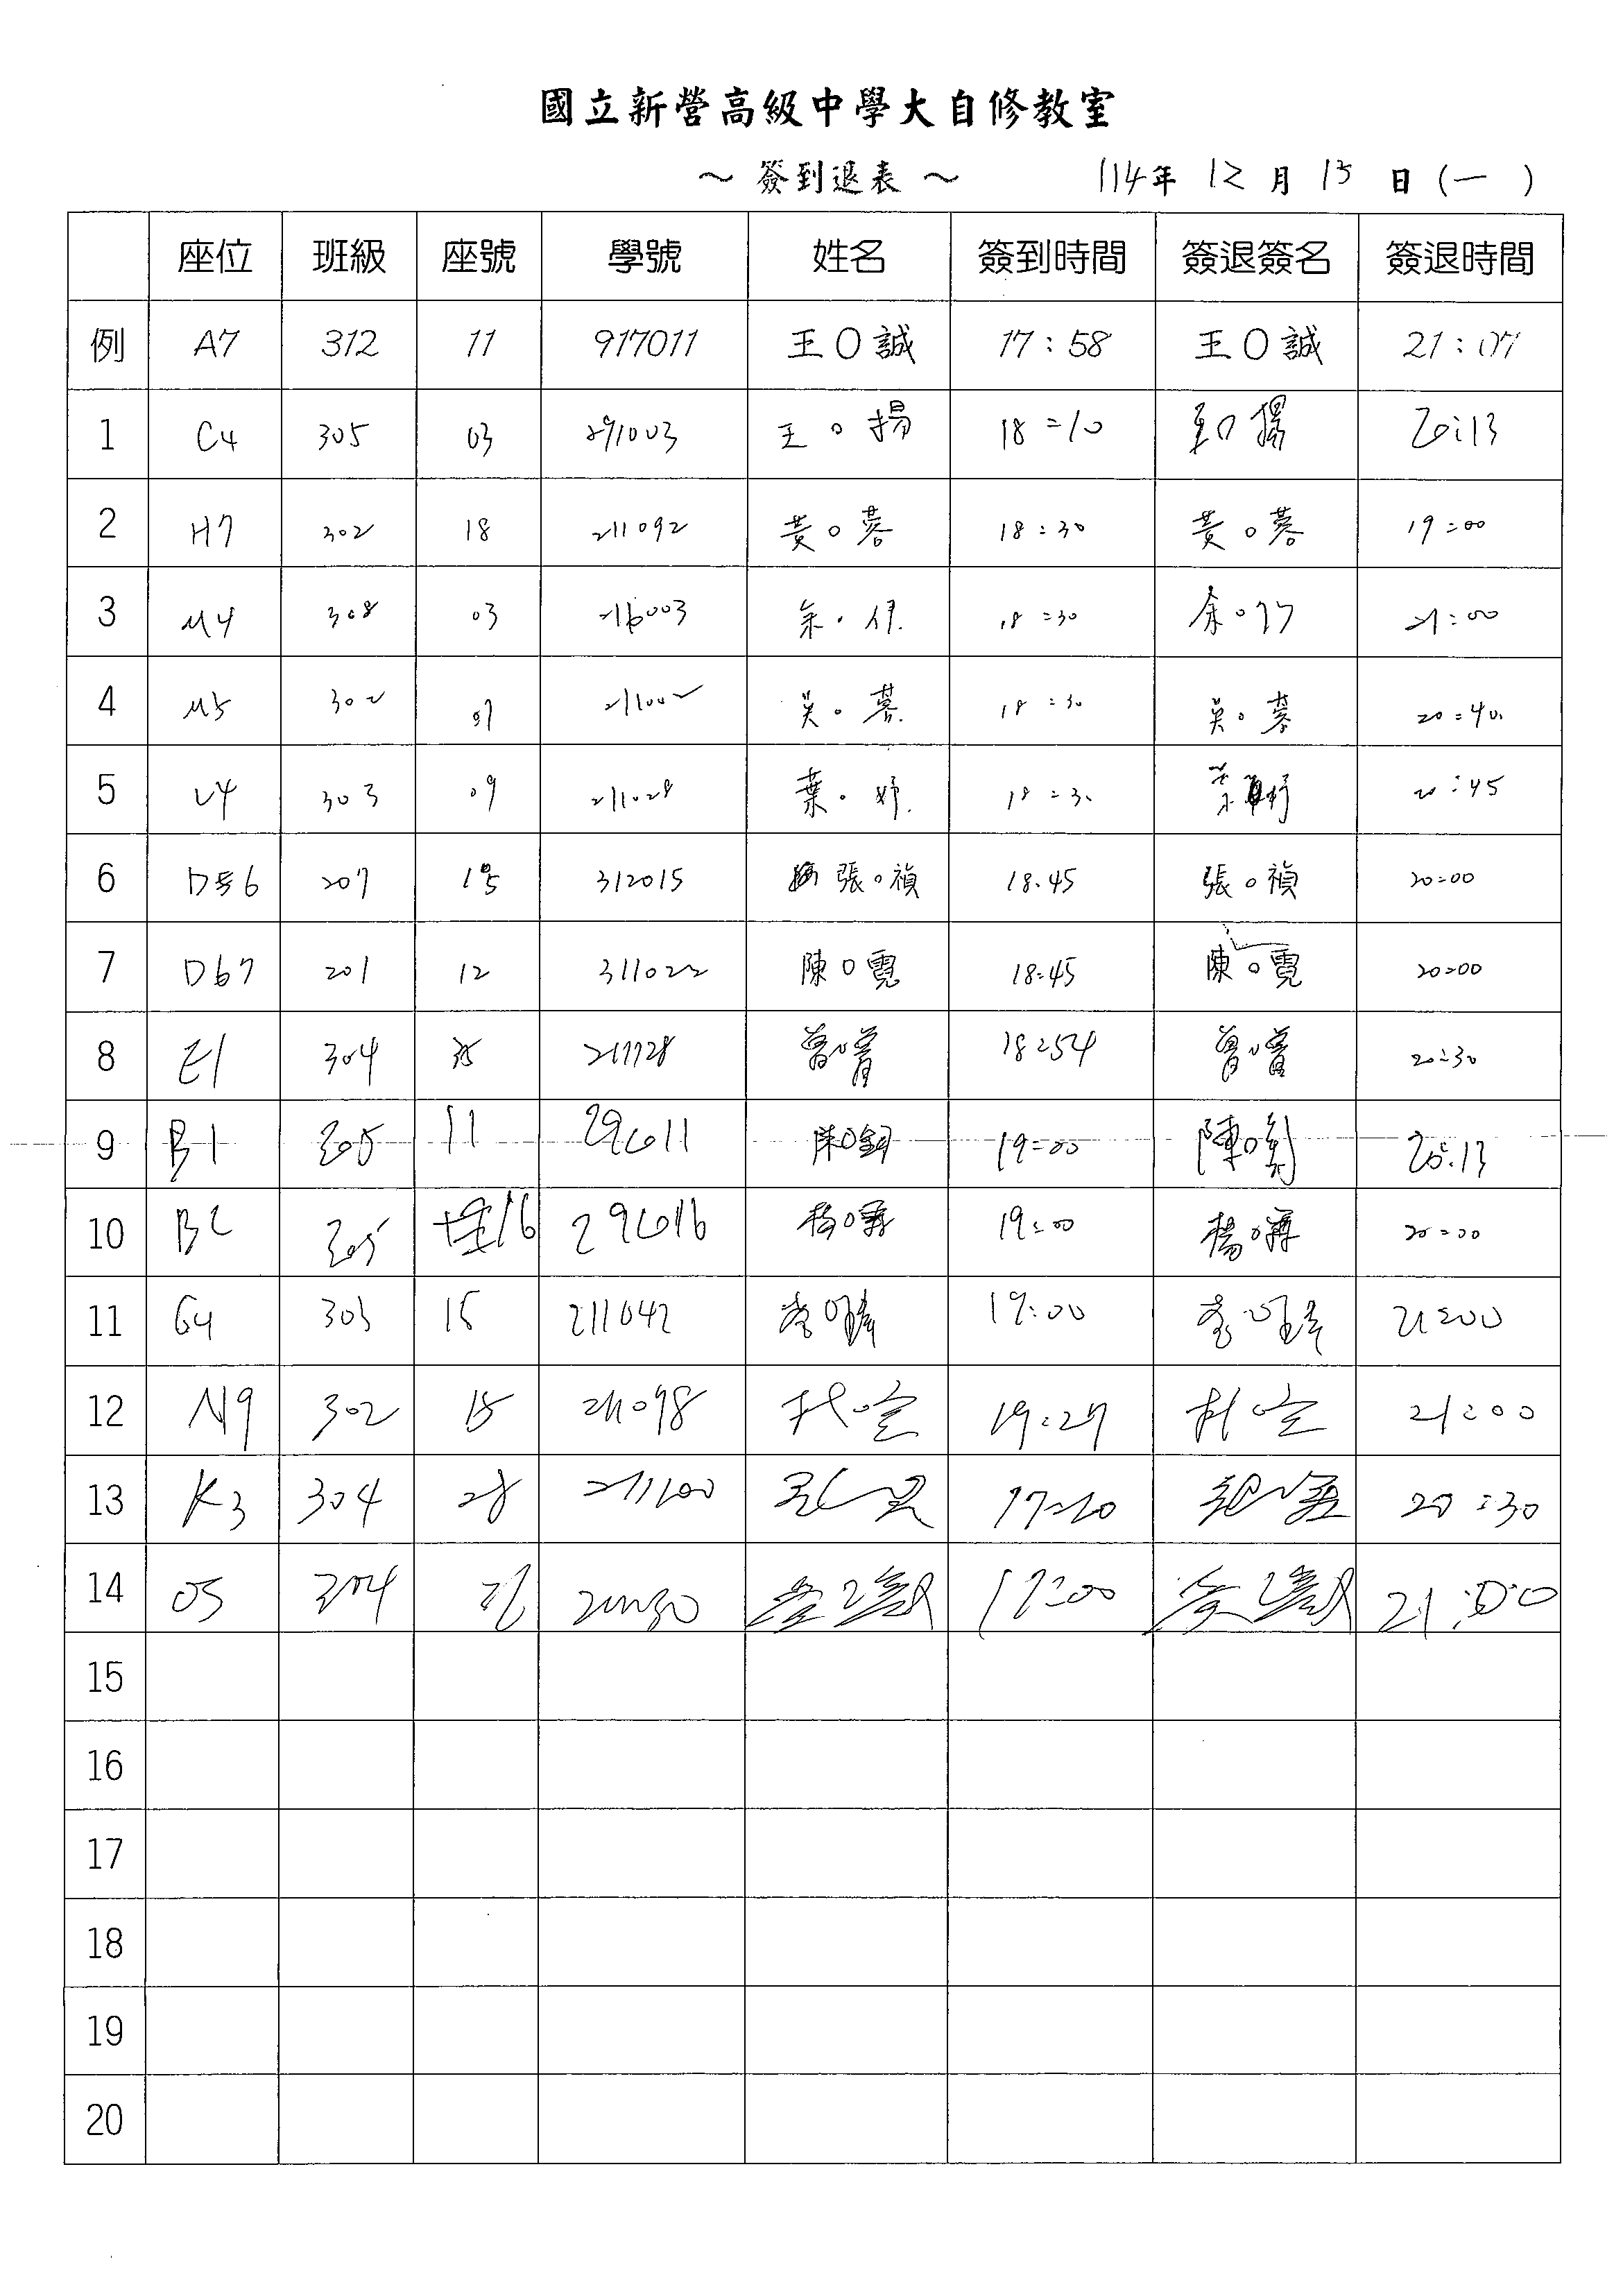 國立新營高級中學大自修教室
～ 簽到退表 ～ 114年 12 月 15 日 (一 )
座位 班級 座號 學號 姓名 簽到時間 簽退簽名 簽退時間
例 A7 312 11 917011 王O誠 17:58 王O誠 21:07
1 C4 305 03 291003 王O揚 18=10 王O揚 20:13
2 H7 302 18 211092 黃O蓉 18:30 黃O蓉 19=00
3 M4 308 03 216003 余 18=30 余 21:00
4 M5 302 07 吳 蓉 18=30 吳 蓉 20=40
5 303 09 211028 葉 妤 18=30 20:45
6 207 15 312015 張O禎 18.45 張O禎 20=00
7 201 12 311022 陳O霓 18:45 陳O霓 20=00
8 E1 304 18:54 20:30
9 B1 305 11 296011 陳O 19=00 陳O 20:13
10 305 16 296016 楊O 19:00 楊O 20=00
11 G4 303 15 211042 李O 19:00 李O 21:00
12 N9 302 15 211098 19:27 21:00
13 K3 304 28 211100 20:30
14 O5 304 21:00
15
16
17
18
19
20